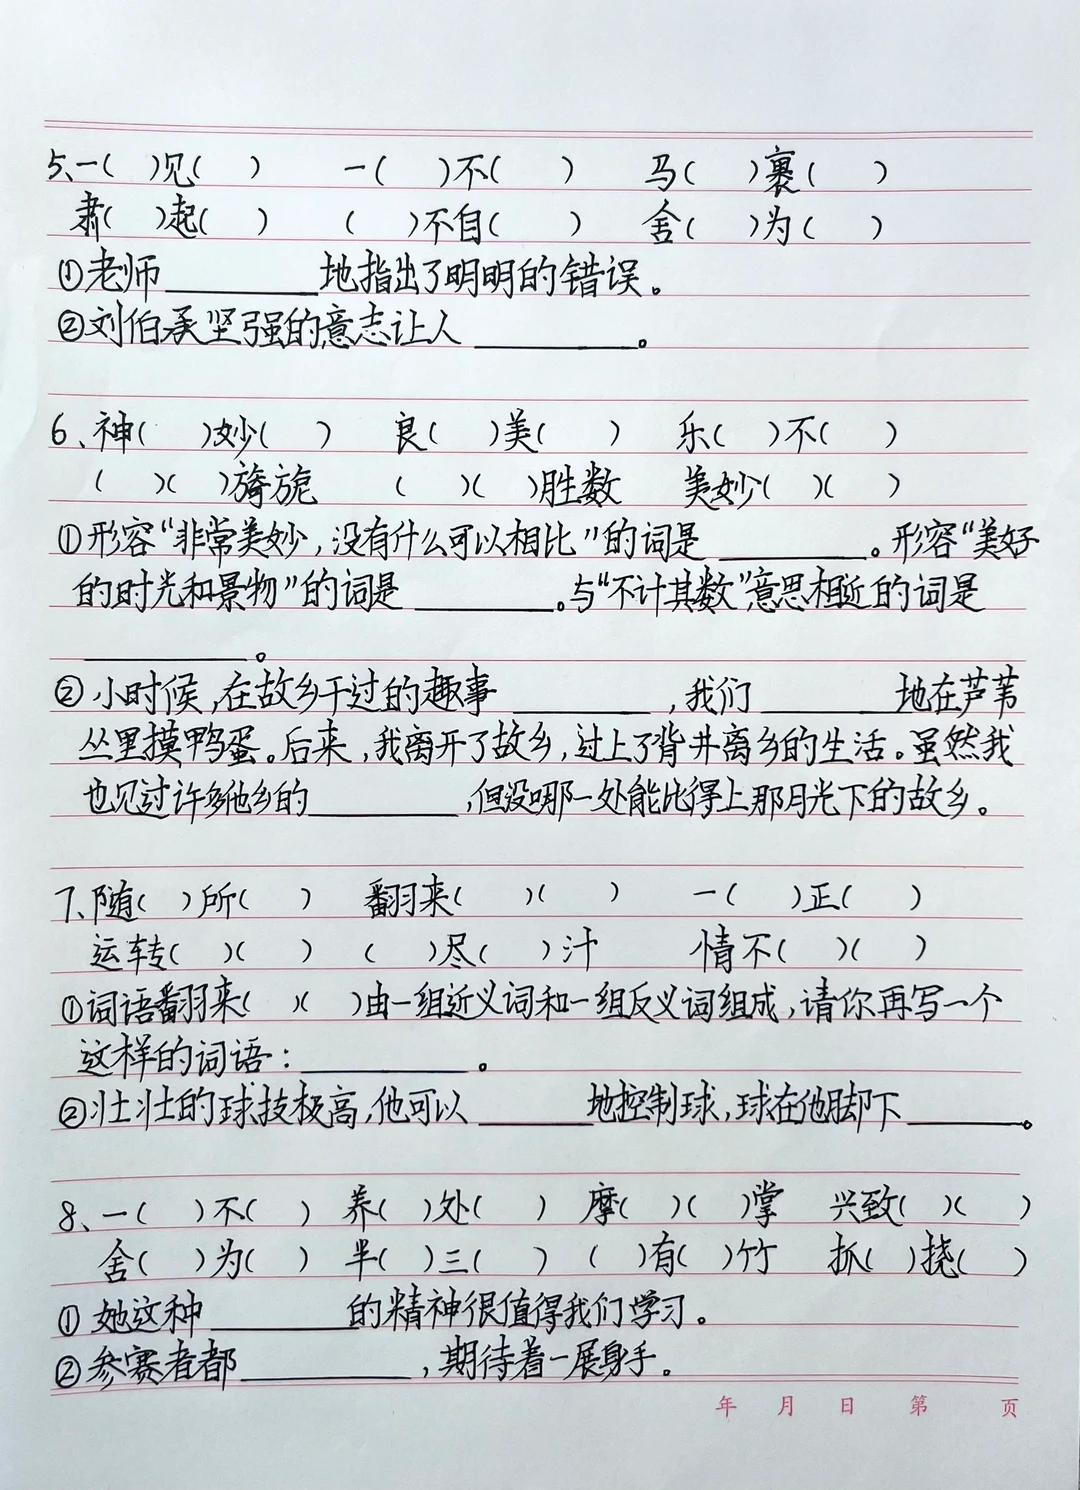 5、一(  )见(  )  一(  )不(  )  马(  )裹(  )
肃(  )起(  )  (  )不自(  )  舍(  )为(  )
①老师________地指出了明明的错误。
②刘伯承坚强的意志让人________。
6、神(  )妙(  )  良(  )美(  )  乐(  )不(  )
(  )(  )旖旎  (  )(  )胜数  美妙(  )(  )
①形容“非常美妙,没有什么可以相比”的词是________。形容“美好
的时光和景物”的词是________。与“不计其数”意思相近的词是
________。
②小时候,在故乡干过的趣事________,我们________地在芦苇
丛里摸鸭蛋。后来,我离开了故乡,过上了背井离乡的生活。虽然我
也见过许多他乡的________,但没哪一处能比得上那月光下的故乡。
7、随(  )所(  )  翻来(  )(  )  一(  )正(  )
运转(  )(  )  (  )尽(  )汁  情不(  )(  )
①词语翻来(  )(  )由一组近义词和一组反义词组成,请你再写一个
这样的词语:________。
②壮壮的球技极高,他可以________地控制球,球在他脚下________。
8、一(  )不(  )  养(  )处(  )  摩(  )(  )掌  兴致(  )(  )
舍(  )为(  )  半(  )三(  )  (  )有(  )竹  抓(  )挠(  )
①她这种________的精神很值得我们学习。
②参赛者都________,期待着一展身手。
年 月 日 第 页